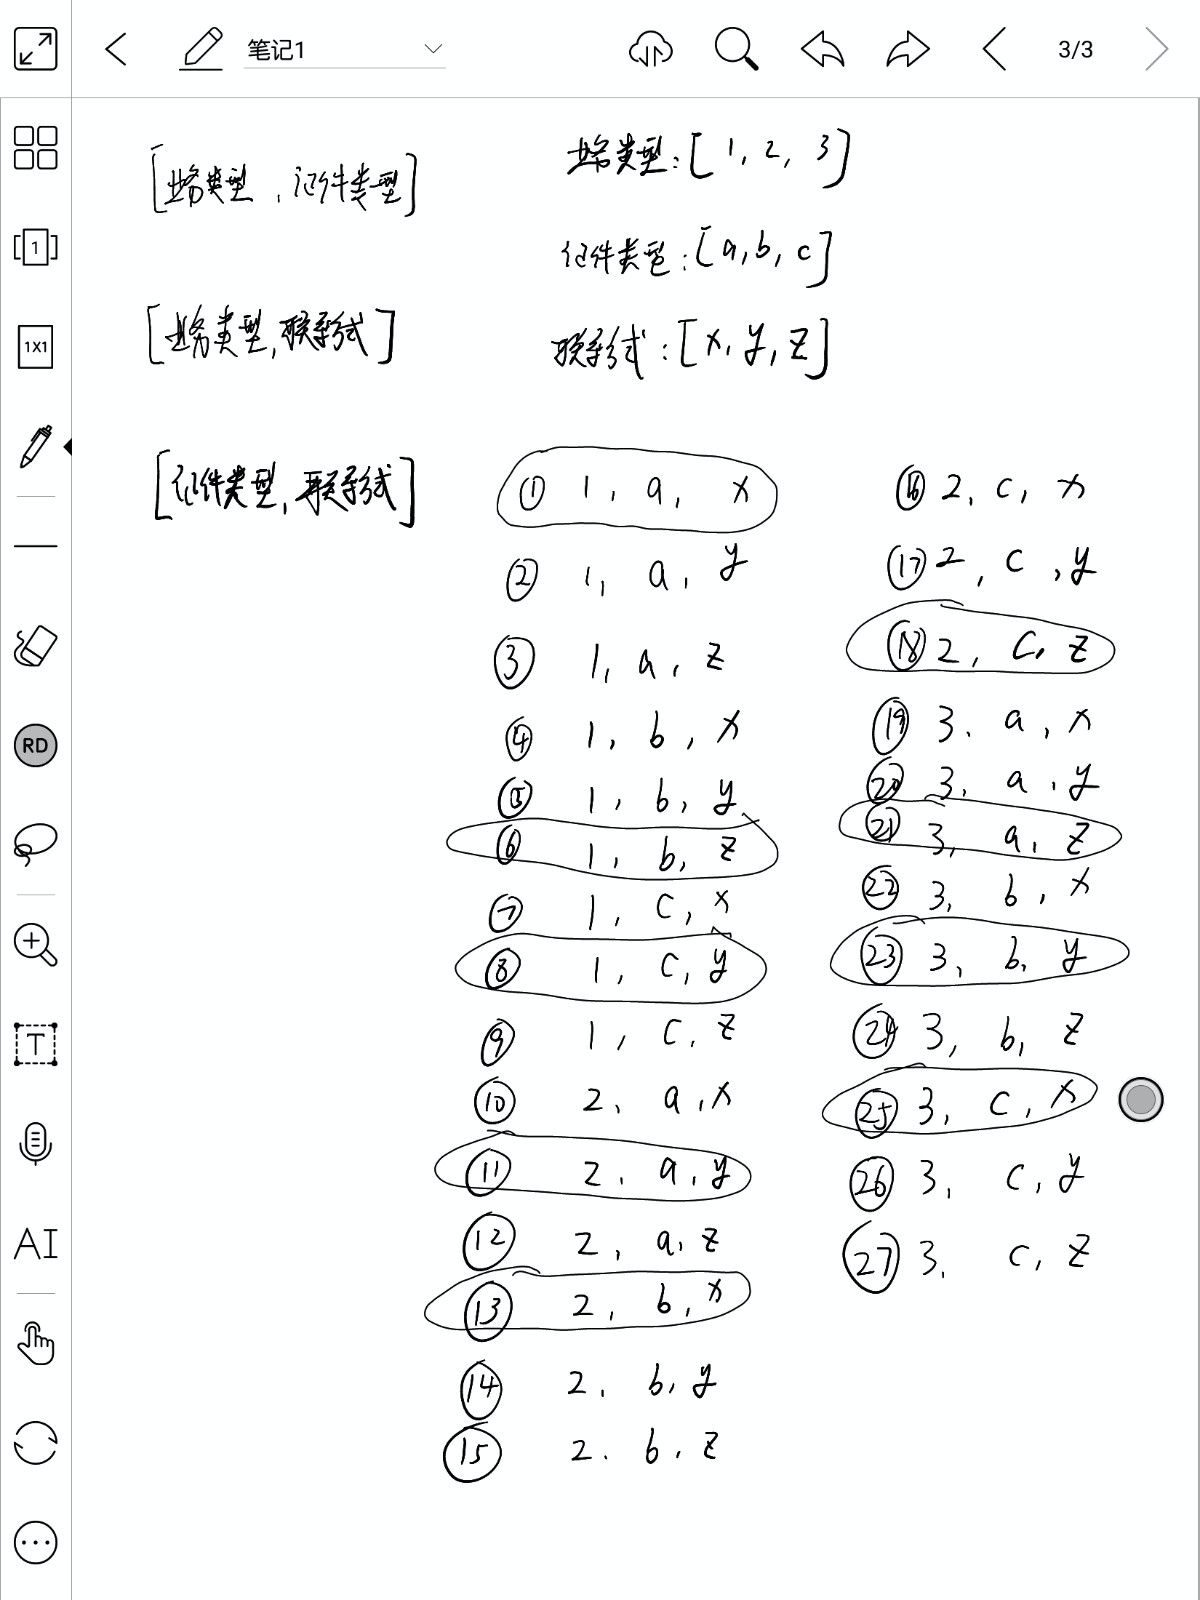 笔记1
3/3
1
1X1
RD
T
AI
[业务类型,证件类型]
[业务类型,联系形式]
[证件类型,联系形式]
业务类型:[1,2,3]
证件类型:[a,b,c]
联系形式:[x,y,z]
① 1, a, x
② 1, a, y
③ 1, a, z
④ 1, b, x
⑤ 1, b, y
⑥ 1, b, z
⑦ 1, c, x
⑧ 1, c, y
⑨ 1, c, z
⑩ 2, a, x
⑪ 2, a, y
⑫ 2, a, z
⑬ 2, b, x
⑭ 2, b, y
⑮ 2, b, z
⑯ 2, c, x
⑰ 2, c, y
⑱ 2, c, z
⑲ 3, a, x
⑳ 3, a, y
㉑ 3, a, z
㉒ 3, b, x
㉓ 3, b, y
㉔ 3, b, z
㉕ 3, c, x
㉖ 3, c, y
㉗ 3, c, z